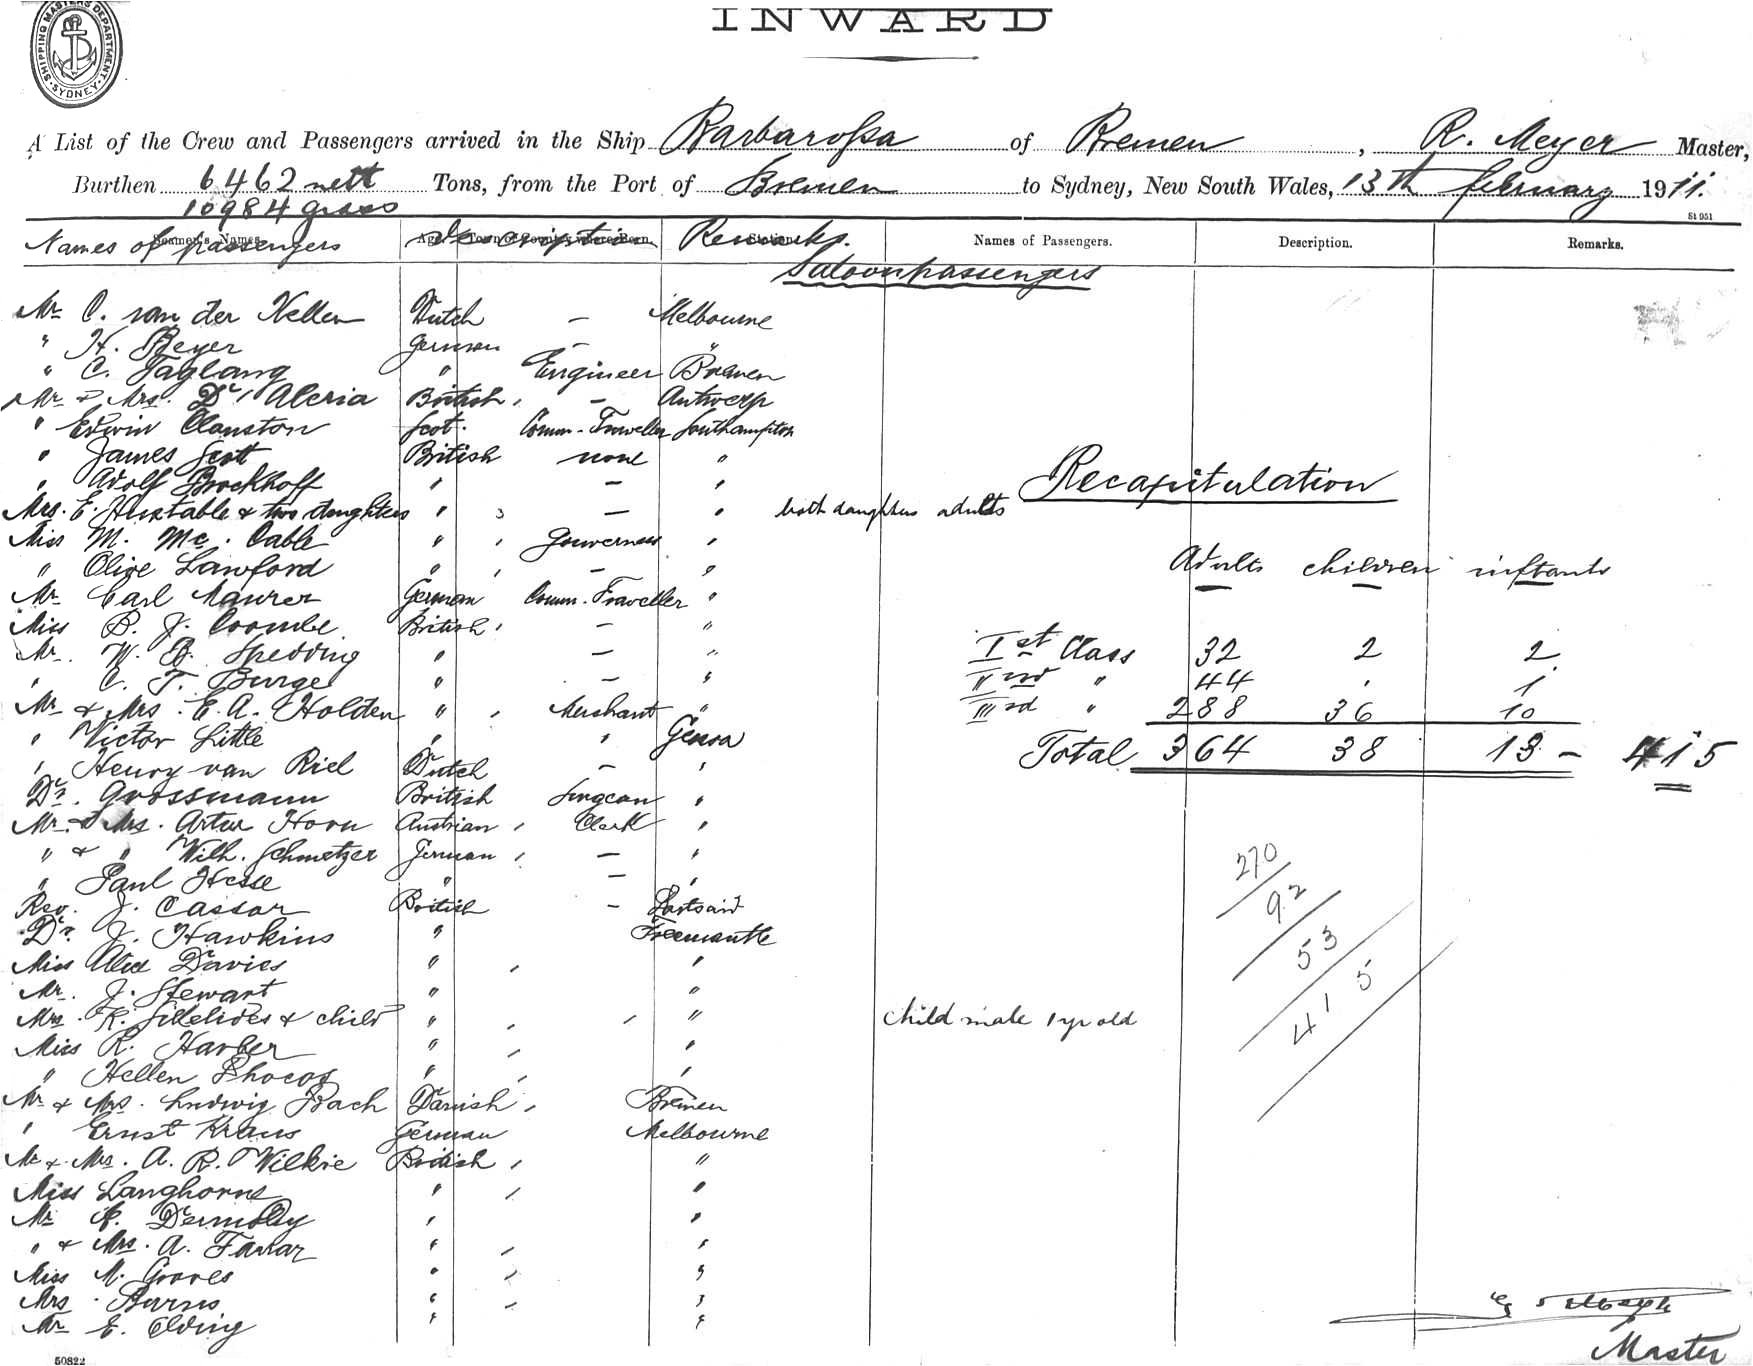 INWARD
SHIPPING MASTERS DEPARTMENT SYDNEY
A List of the Crew and Passengers arrived in the Ship Barbarossa of Bremen, R. Meyer Master,
Burthen 6462 nett Tons, from the Port of Bremen to Sydney, New South Wales, 13th February 1911.
10984 gross
St 951
Names of passengers Description Remarks. Names of Passengers. Description. Remarks.
Saloonpassengers
Mr C. van der Nellen Dutch — Melbourne
" H. Beyer German — "
" C. Taglang " Engineer Bremen
Mr & Mrs. Dr Aleria British , — Antwerp
" Edwin Clanston Scot. Comm-Traveller Southampton
" James Scott British none "
" Adolf Brockhoff " — "
Mrs. E. Huxtable & two daughters " 3 — " both daughters adults
Miss M. Mc. Cable " , Gouverness "
" Olive Lawford " , — "
Mr Carl Maurer German Comm. Traveller "
Miss B. J. Coombe British , — "
Mr. W. B. Spedding " — "
" C. T. Burge " — "
Mr & Mrs. E. A. Holden " , Merchant "
" Victor Little " " Genoa
" Henry van Riel Dutch — "
Dr. Grossmann British "
Mr. & Mrs. Artur Horn Austrian , Clerk "
" & " Wilh. Schmetzer German , — "
" Paul Hesse " — "
Rev. J. Cassar British — Portsaid
Dr. J. Hawkins " Freemantle
Miss Davies " , "
Mr. J. Stewart " "
Mrs. K. & child " , , " child male 1 yr old
Miss R. Harber " , "
" Hellen Phocos " , "
Mr & Mrs. Ludwig Bach Danish , Bremen
" Ernst Kraus German Melbourne
Mr & Mrs. A. R. Wilkie British , "
Miss Langhorne " , "
Mr " "
" & Mrs. A. Farrar " , "
Miss M. Graves " , "
Mrs. Burns " , "
Mr E. Olding " "
50822
Recapitulation
Adults children infants
Ist Class 32 2 2
IInd " 44 . 1
IIIrd " 288 36 10
Total 364 38 13 — 415
270
92
53
415
Master